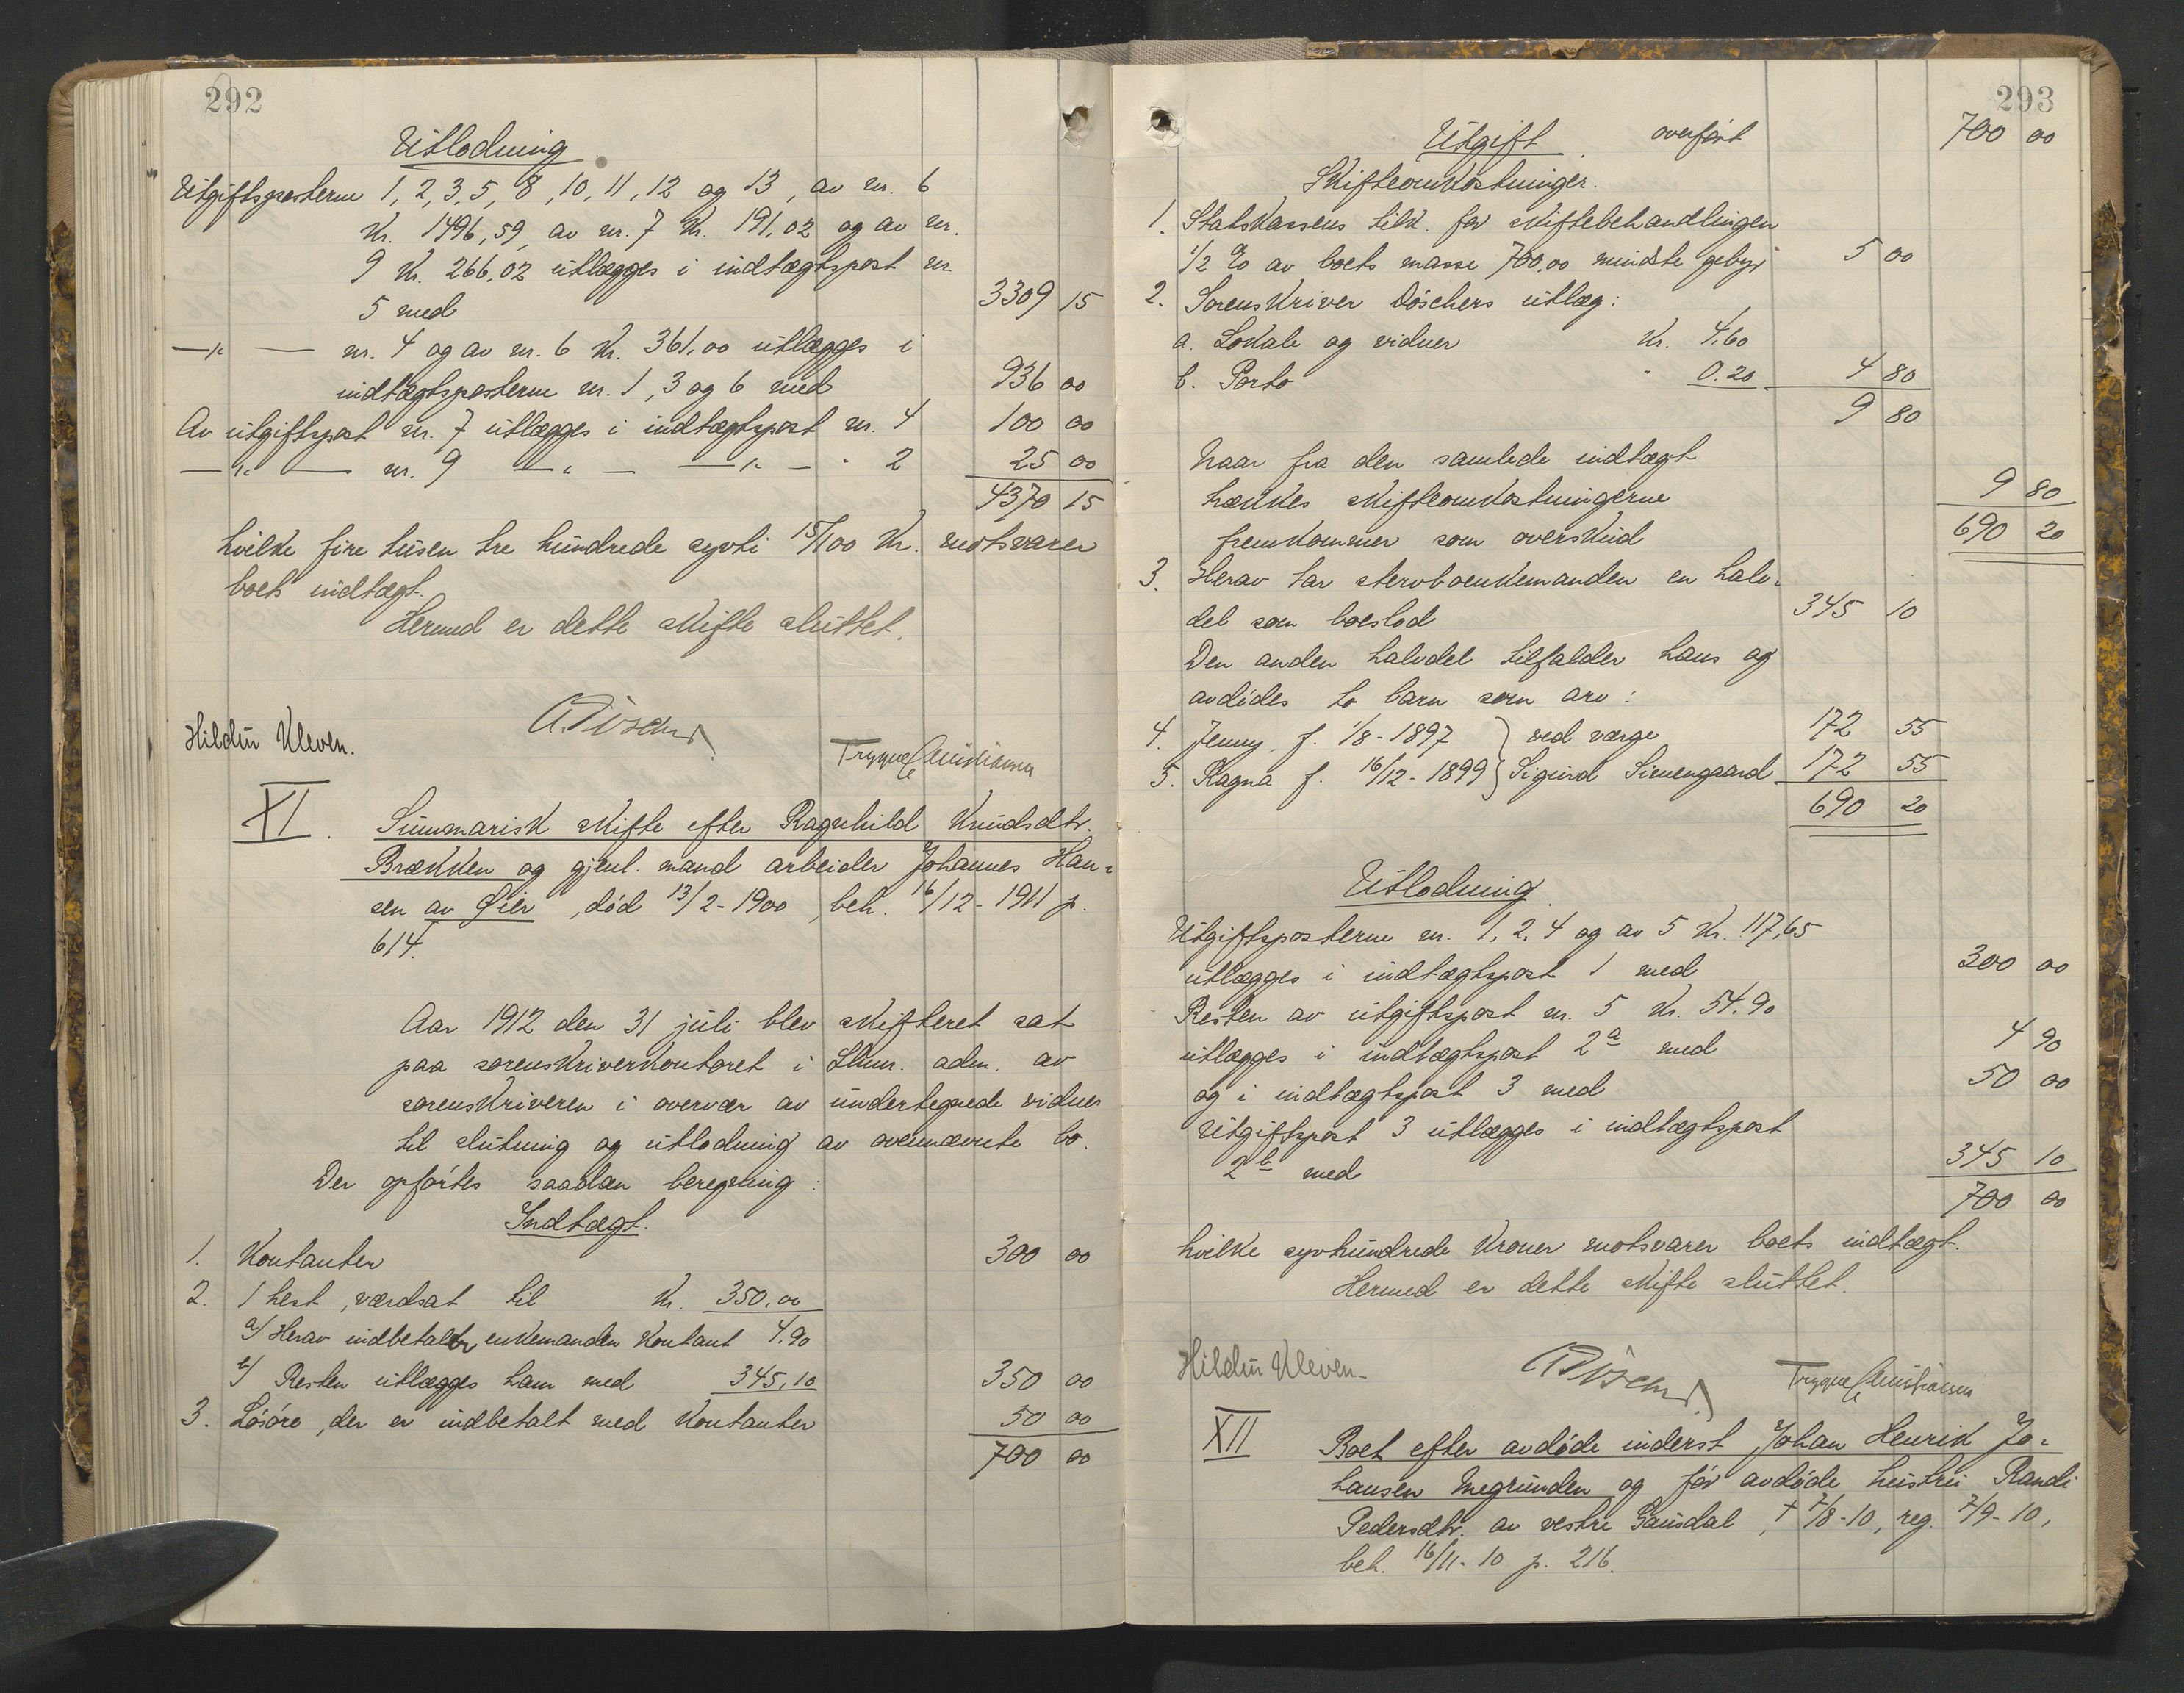 292
Utlodning.
Utgiftsposterne 1, 2, 3, 5, 8, 10, 11, 12 og 13, av nr. 6
Kr. 1496,59, av nr. 7 Kr. 191,02 og av nr.
9 Kr. 266,02 utlægges i indtægtspost nr
5 med 3309 15
—"— nr. 4 og av nr. 6 Kr. 361,00 utlægges i
indtægtsposterne nr. 1, 3 og 6 med 936 00
Av utgiftspost nr. 7 utlægges i indtægtspost nr. 4 100 00
—"— nr. 9 —"— —"— " 2 25 00
4370 15
hvilke fire tusen tre hundrede sytti 15/100 Kr. motsvarer
boets indtægt.
Hermed er dette skifte sluttet.
Hildur Kleven.
Trygve Christiansen
XI. Summarisk skifte efter Ragnhild Knudsdtr.
Brækken og gjenl. mand arbeider Johannes Han-
sen av Øier, død 13/2-1900, beh. 16/12-1911 p.
614.
Aar 1912 den 31 juli blev skifteret sat
paa sorenskriverkontoret i Lhmr. adm. av
sorenskriveren i overvær av undertegnede vidner
til slutning og utlodning av ovennævnte bo.
Der opførtes saadan beregning:
Indtægt.
1. Kontanter 300 00
2. 1 hest, værdsat til Kr. 350,00
a/ Herav indbetaler enkemanden kontant 4.90
b/ Resten utlægges ham med 345,10 350 00
3. Løsøre, der er indbetalt med kontanter 50 00
700 00
293
Utgift. overført 700 00
Skifteomkostninger.
1. Statskassens tilk. for skiftebehandlingen
1/2 % av boets masse 700,00 mindste gebyr 5 00
2. Sorenskriver Döschers utlæg:
a. Lokale og vidner Kr. 4,60
b. Porto " 0.20 4 80
9 80
Naar fra den samlede indtægt
trækkes skifteomkostningerne 9 80
fremkommer som overskud 690 20
3. Herav tar stervboenkemanden en halv-
del som boeslod 345 10
Den anden halvdel tilfalder hans og
avdødes to barn som arv:
4. Jenny, f. 1/8-1897 } ved værge 172 55
5. Ragna f. 16/12-1899 } Sigurd Simengaard 172 55
690 20
Utlodning.
Utgiftsposterne nr. 1, 2, 4 og av 5 Kr. 117,65
utlægges i indtægtspost 1 med 300 00
Resten av utgiftspost nr. 5 Kr. 54.90
utlægges i indtægtspost 2a med 4 90
og i indtægtspost 3 med 50 00
Utgiftspost 3 utlægges i indtægtspost
2b med 345 10
700 00
hvilke syvhundrede kroner motsvarer boets indtægt.
Hermed er dette skifte sluttet.
Hildur Kleven.
Trygve Christiansen
XII Boet efter avdøde inderst Johan Henrik Jo-
hansen Megrunden og før avdøde hustru Randi
Pedersdtr. av vestre Gausdal, † 7/8-10, reg. 7/9-10,
beh. 16/11-10 p. 216.